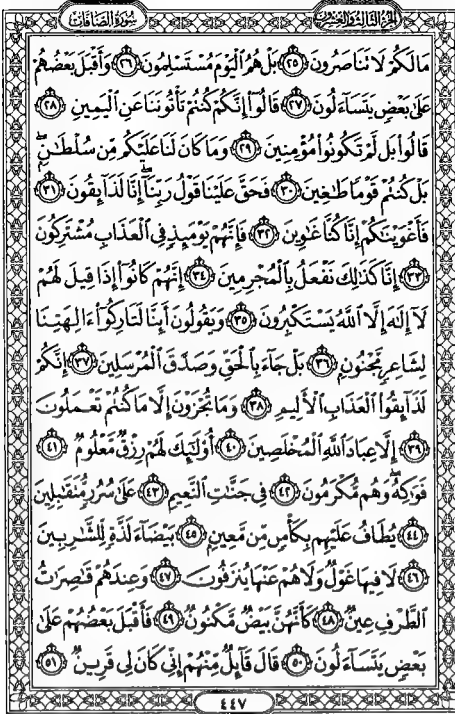 سُورَةُ الصَّافَّاتِ الجُزْءُ الثَّالِثُ وَالعِشْرُونَ
مَا لَكُمْ لَا تَنَاصَرُونَ ٢٥ بَلْ هُمُ الْيَوْمَ مُسْتَسْلِمُونَ ٢٦ وَأَقْبَلَ بَعْضُهُمْ
عَلَىٰ بَعْضٍ يَتَسَاءَلُونَ ٢٧ قَالُوا إِنَّكُمْ كُنتُمْ تَأْتُونَنَا عَنِ الْيَمِينِ ٢٨
قَالُوا بَل لَّمْ تَكُونُوا مُؤْمِنِينَ ٢٩ وَمَا كَانَ لَنَا عَلَيْكُم مِّن سُلْطَانٍ ۖ
بَلْ كُنتُمْ قَوْمًا طَاغِينَ ٣٠ فَحَقَّ عَلَيْنَا قَوْلُ رَبِّنَا ۖ إِنَّا لَذَائِقُونَ ٣١
فَأَغْوَيْنَاكُمْ إِنَّا كُنَّا غَاوِينَ ٣٢ فَإِنَّهُمْ يَوْمَئِذٍ فِي الْعَذَابِ مُشْتَرِكُونَ
٣٣ إِنَّا كَذَٰلِكَ نَفْعَلُ بِالْمُجْرِمِينَ ٣٤ إِنَّهُمْ كَانُوا إِذَا قِيلَ لَهُمْ
لَا إِلَٰهَ إِلَّا اللَّهُ يَسْتَكْبِرُونَ ٣٥ وَيَقُولُونَ أَئِنَّا لَتَارِكُو آلِهَتِنَا
لِشَاعِرٍ مَّجْنُونٍ ٣٦ بَلْ جَاءَ بِالْحَقِّ وَصَدَّقَ الْمُرْسَلِينَ ٣٧ إِنَّكُمْ
لَذَائِقُو الْعَذَابِ الْأَلِيمِ ٣٨ وَمَا تُجْزَوْنَ إِلَّا مَا كُنتُمْ تَعْمَلُونَ
٣٩ إِلَّا عِبَادَ اللَّهِ الْمُخْلَصِينَ ٤٠ أُولَٰئِكَ لَهُمْ رِزْقٌ مَّعْلُومٌ ٤١
فَوَاكِهُ ۖ وَهُم مُّكْرَمُونَ ٤٢ فِي جَنَّاتِ النَّعِيمِ ٤٣ عَلَىٰ سُرُرٍ مُّتَقَابِلِينَ
٤٤ يُطَافُ عَلَيْهِم بِكَأْسٍ مِّن مَّعِينٍ ٤٥ بَيْضَاءَ لَذَّةٍ لِّلشَّارِبِينَ
٤٦ لَا فِيهَا غَوْلٌ وَلَا هُمْ عَنْهَا يُنزَفُونَ ٤٧ وَعِندَهُمْ قَاصِرَاتُ
الطَّرْفِ عِينٌ ٤٨ كَأَنَّهُنَّ بَيْضٌ مَّكْنُونٌ ٤٩ فَأَقْبَلَ بَعْضُهُمْ عَلَىٰ
بَعْضٍ يَتَسَاءَلُونَ ٥٠ قَالَ قَائِلٌ مِّنْهُمْ إِنِّي كَانَ لِي قَرِينٌ ٥١
٤٤٧